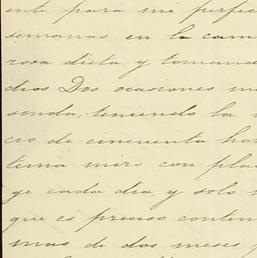 ente para mi perfec
semanas en la cam
rosa dieta y tomand
dios Dos ocasiones me
sonda, teniendo la
cio de cincuenta ho
tema miro con pla
ye cada dia y solo
que es preciso contin
mas de dos meses